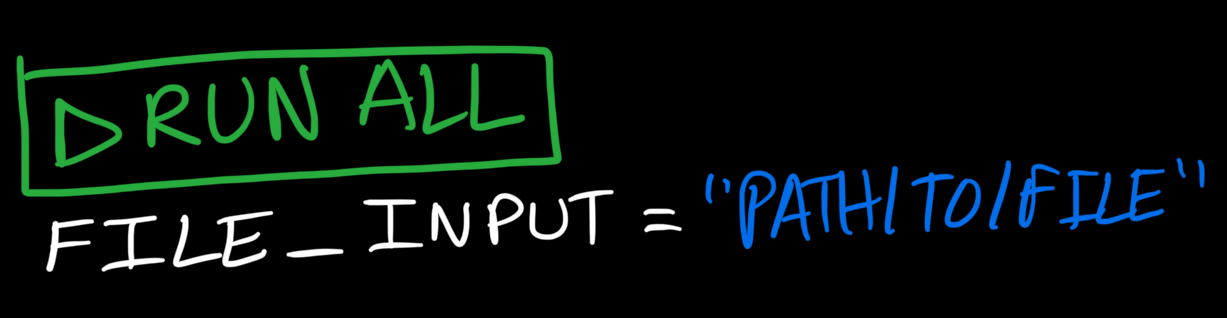 ▷ RUN ALL
FILE_INPUT = "PATH/TO/FILE"